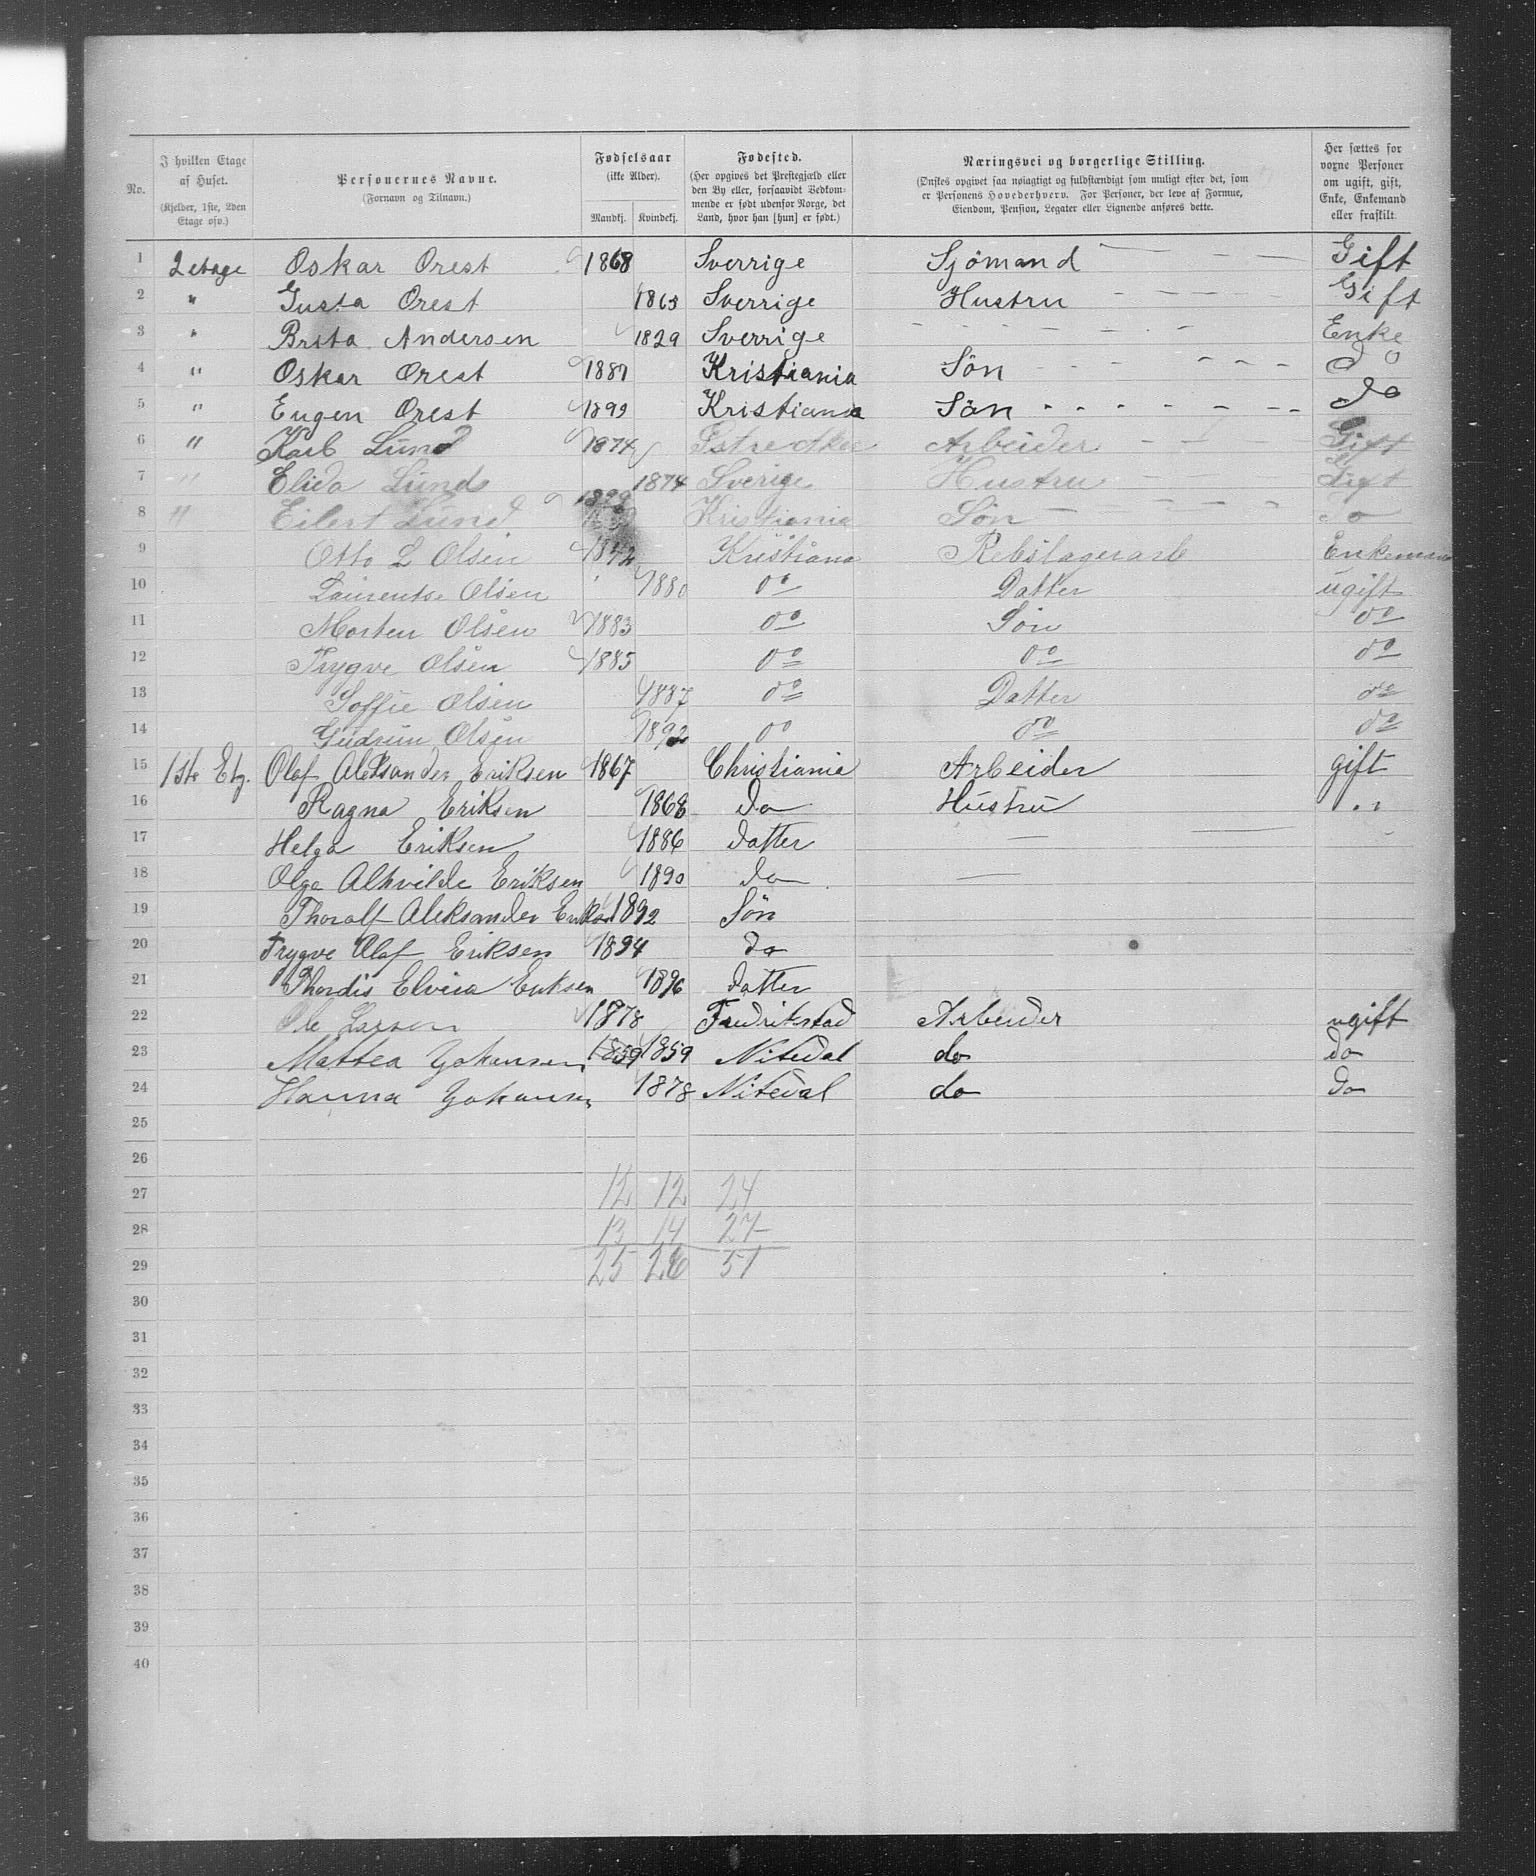 No.
I hvilken Etage af Huset. (Kjelder, 1ste, 2den Etage osv.)
Personernes Navne. (Fornavn og Tilnavn.)
Fødselsaar (ikke Alder). Mandkj. Kvindekj.
Fødested. (Her opgives det Prestegjæld eller den By eller, forsaavidt Vedkommende er født udenfor Norge, det Land, hvor han [hun] er født.)
Næringsvei og borgerlige Stilling. (Ønskes opgivet saa nøiagtigt og fuldstændigt som muligt efter det, som er Personens Hovederhverv. For Personer, der leve af Formue, Eiendom, Pension, Legater eller Lignende anføres dette.
Her sættes for voxne Personer om ugift, gift, Enke, Enkemand eller fraskilt.
1 2 etage Oskar Orest 1868 Sverrige Sjömand Gift
2 " Gusta Orest 1863 Sverrige Hustru Gift
3 " Brita Andersen 1829 Sverrige Enke
4 " Oskar Orest 1887 Kristiania Sön do
5 " Eugen Orest 1899 Kristiania Sön do
6 " Karl Lund 1874 Østre Aker Arbeider Gift
7 " Elida Lund 1874 Sverige Hustru Gift
8 " Eilert Lund 1899 Kristiania Søn do
9 Otto L Olsen 1842 Kristiana Rebslagerarb Enkeman
10 Laurentse Olsen 1880 do Datter ugift
11 Morten Olsen 1883 do Søn do
12 Trygve Olsen 1885 do do do
13 Soffie Olsen 1887 do Datter do
14 Gudrun Olsen 1892 do do do
15 1ste Etg. Olaf Aleksander Eriksen 1867 Christiania Arbeider gift
16 Ragna Eriksen 1868 do Hustru "
17 Helga Eriksen 1886 datter
18 Olga Alhvilde Eriksen 1890 do
19 Thoralf Aleksander Eriksen 1892 Sön
20 Trygve Olaf Eriksen 1894 do
21 Thordis Elvira Eriksen 1896 datter
22 Ole Larsen 1878 Fredrikstad Arbeider ugift
23 Mattea Johansen 1859 1859 Nitedal do do
24 Hanna Johansen 1878 Nitedal do do
25
26
27 12 12 24
28 13 14 27
29 25 26 51
30
31
32
33
34
35
36
37
38
39
40